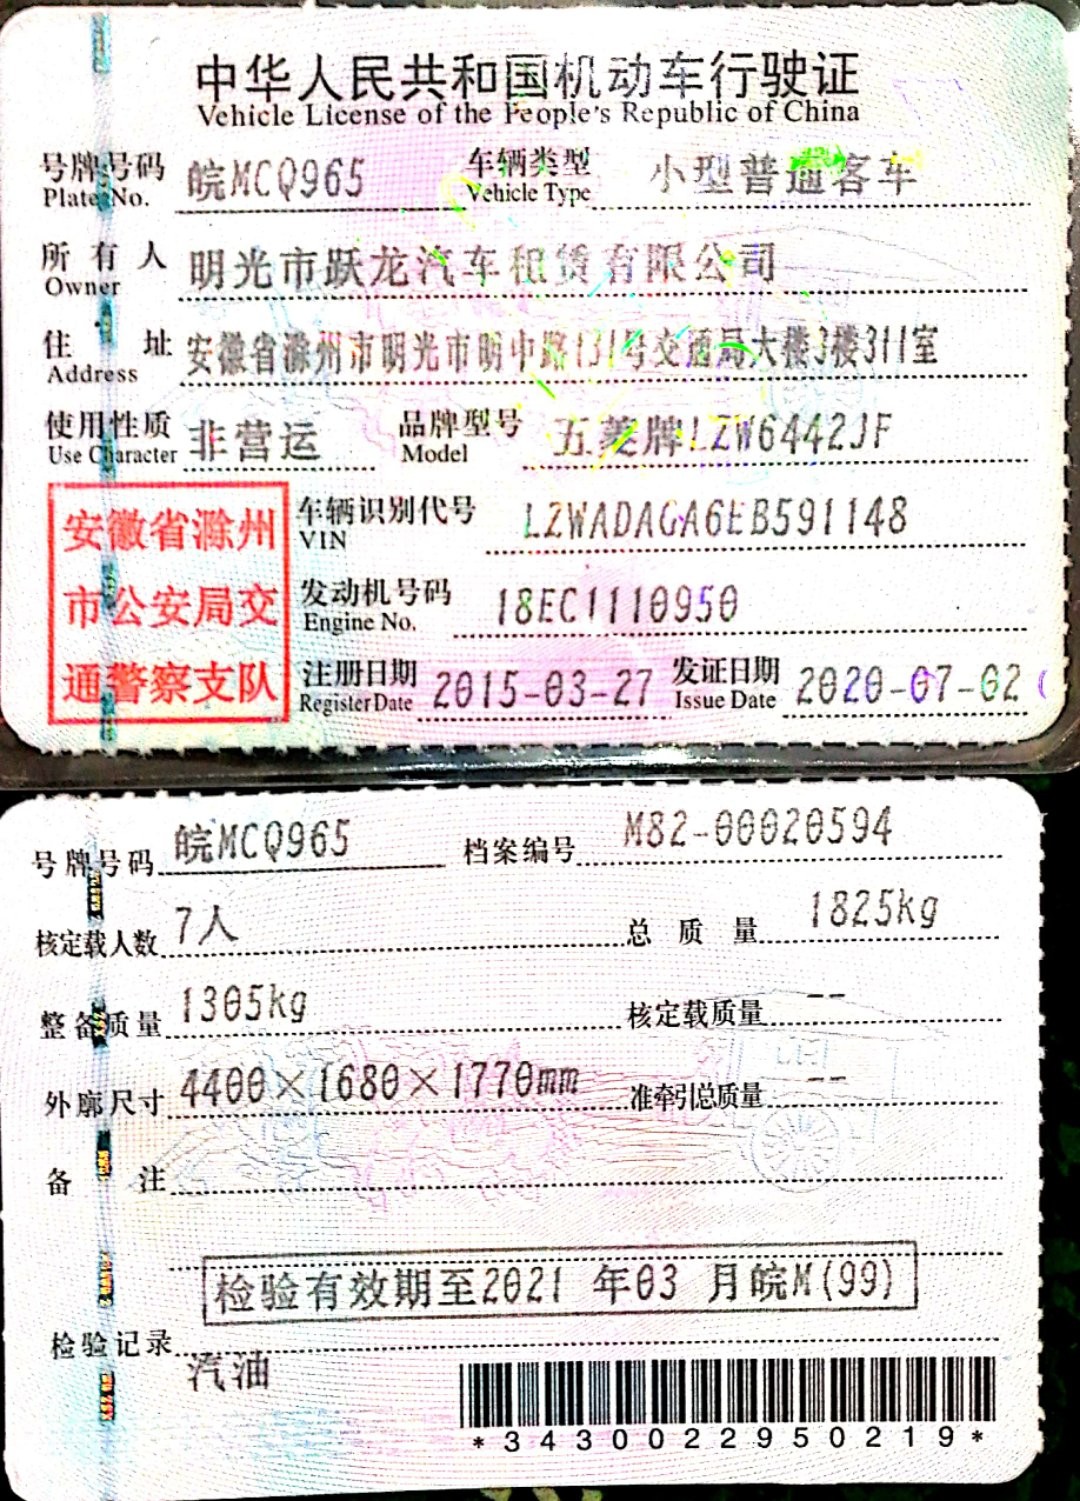 中华人民共和国机动车行驶证
Vehicle License of the People's Republic of China
号牌号码 皖MCQ965 车辆类型 小型普通客车
Plate No. Vehicle Type
所有人 明光市跃龙汽车租赁有限公司
Owner
住址 安徽省滁州市明光市明中路131号交通局大楼3楼311室
Address
使用性质 非营运 品牌型号 五菱牌LZW6442JF
Use Character Model
安徽省滁州
市公安局交
通警察支队
车辆识别代号 LZWADAGA6EB591148
VIN
发动机号码 18EC1110950
Engine No.
注册日期 2015-03-27 发证日期 2020-07-02
Register Date Issue Date
号牌号码 皖MCQ965 档案编号 M82-00020594
核定载人数 7人 总质量 1825kg
整备质量 1305kg 核定载质量 --
外廓尺寸 4400×1680×1770mm 准牵引总质量 --
备注
检验有效期至2021 年03 月皖M(99)
检验记录
汽油
*3430022950219*